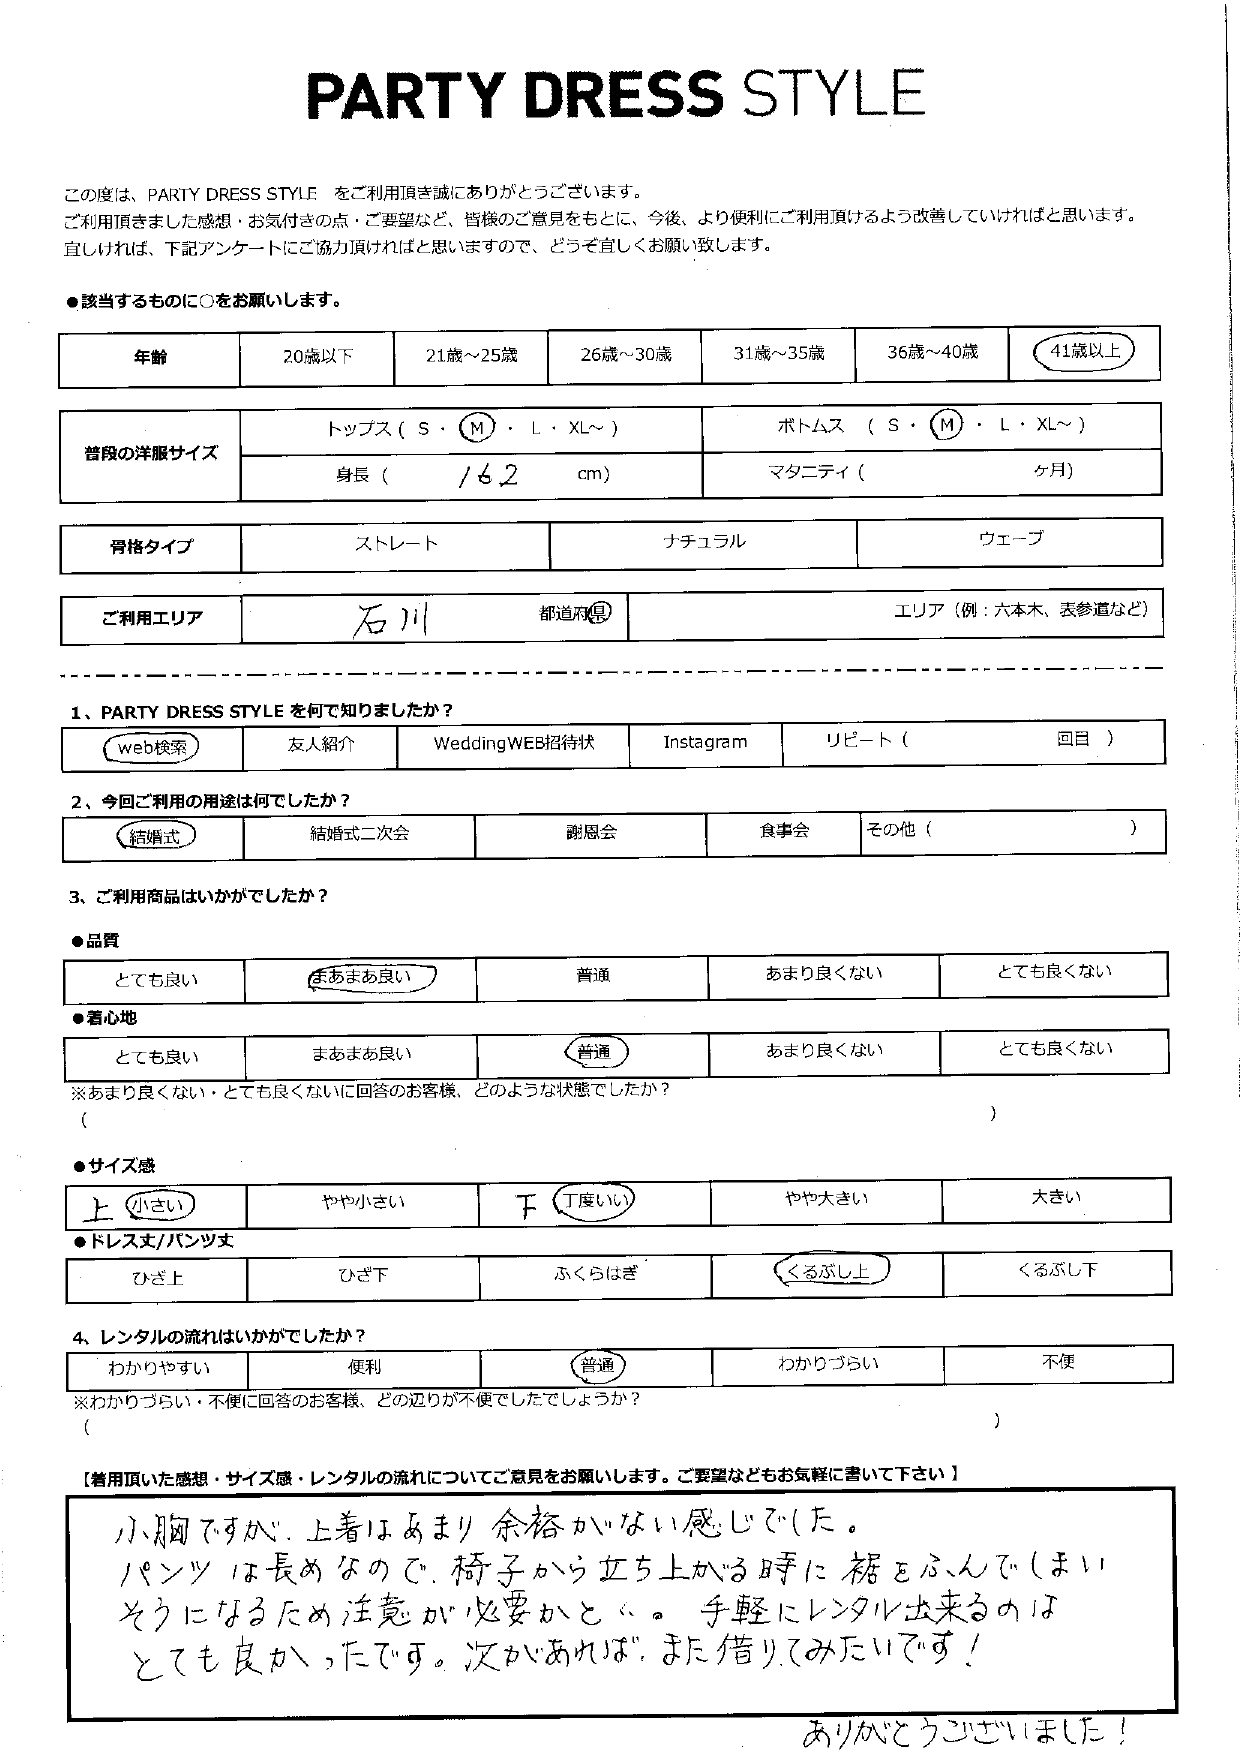 PARTY DRESS STYLE
この度は、PARTY DRESS STYLE をご利用頂き誠にありがとうございます。
ご利用頂きました感想・お気付きの点・ご要望など、皆様のご意見をもとに、今後、より便利にご利用頂けるよう改善していければと思います。
宜しければ、下記アンケートにご協力頂ければと思いますので、どうぞ宜しくお願い致します。
●該当するものに○をお願いします。
年齢 20歳以下 21歳～25歳 26歳～30歳 31歳～35歳 36歳～40歳 41歳以上
普段の洋服サイズ トップス ( S ・ M ・ L ・ XL～ ) ボトムス ( S ・ M ・ L ・ XL～ )
身長 ( 162 cm) マタニティ ( ケ月)
骨格タイプ ストレート ナチュラル ウェーブ
ご利用エリア 石川 都道府県 エリア（例：六本木、表参道など）
1、PARTY DRESS STYLE を何で知りましたか？
web検索 友人紹介 WeddingWEB招待状 Instagram リピート ( 回目 )
2、今回ご利用の用途は何でしたか？
結婚式 結婚式二次会 謝恩会 食事会 その他 ( )
3、ご利用商品はいかがでしたか？
●品質
とても良い まあまあ良い 普通 あまり良くない とても良くない
●着心地
とても良い まあまあ良い 普通 あまり良くない とても良くない
※あまり良くない・とても良くないに回答のお客様、どのような状態でしたか？
( )
●サイズ感
上 小さい やや小さい 下 丁度いい やや大きい 大きい
●ドレス丈/パンツ丈
ひざ上 ひざ下 ふくらはぎ くるぶし上 くるぶし下
4、レンタルの流れはいかがでしたか？
わかりやすい 便利 普通 わかりづらい 不便
※わかりづらい・不便に回答のお客様、どの辺りが不便でしたでしょうか？
( )
【着用頂いた感想・サイズ感・レンタルの流れについてご意見をお願いします。ご要望などもお気軽に書いて下さい】
小胸ですが、上着はあまり余裕がない感じでした。
パンツは長めなので、椅子から立ち上がる時に裾をふんでしまい
そうになるため注意が必要かと…。手軽にレンタル出来るのは
とても良かったです。次があれば、また借りてみたいです！
ありがとうございました！